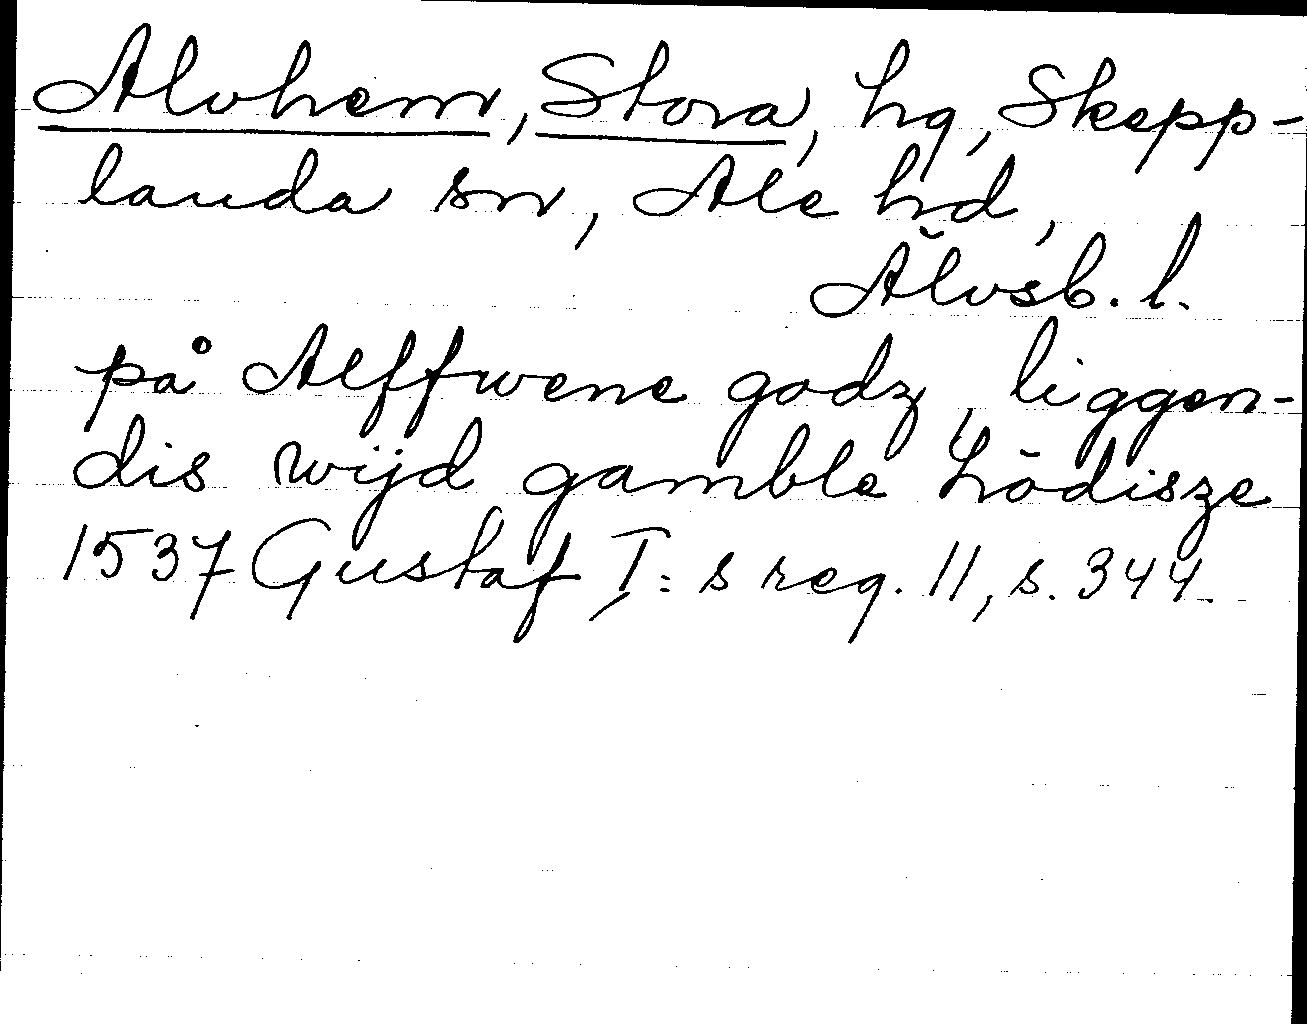 Alvhem, Stora, hg, Skepp-
landa sn, Ale hd,
Älvsb. l.
på Alffwene godz, liggen-
dis wijd gamble Lödisze
1537 Gustaf I:s reg. 11, s. 344.